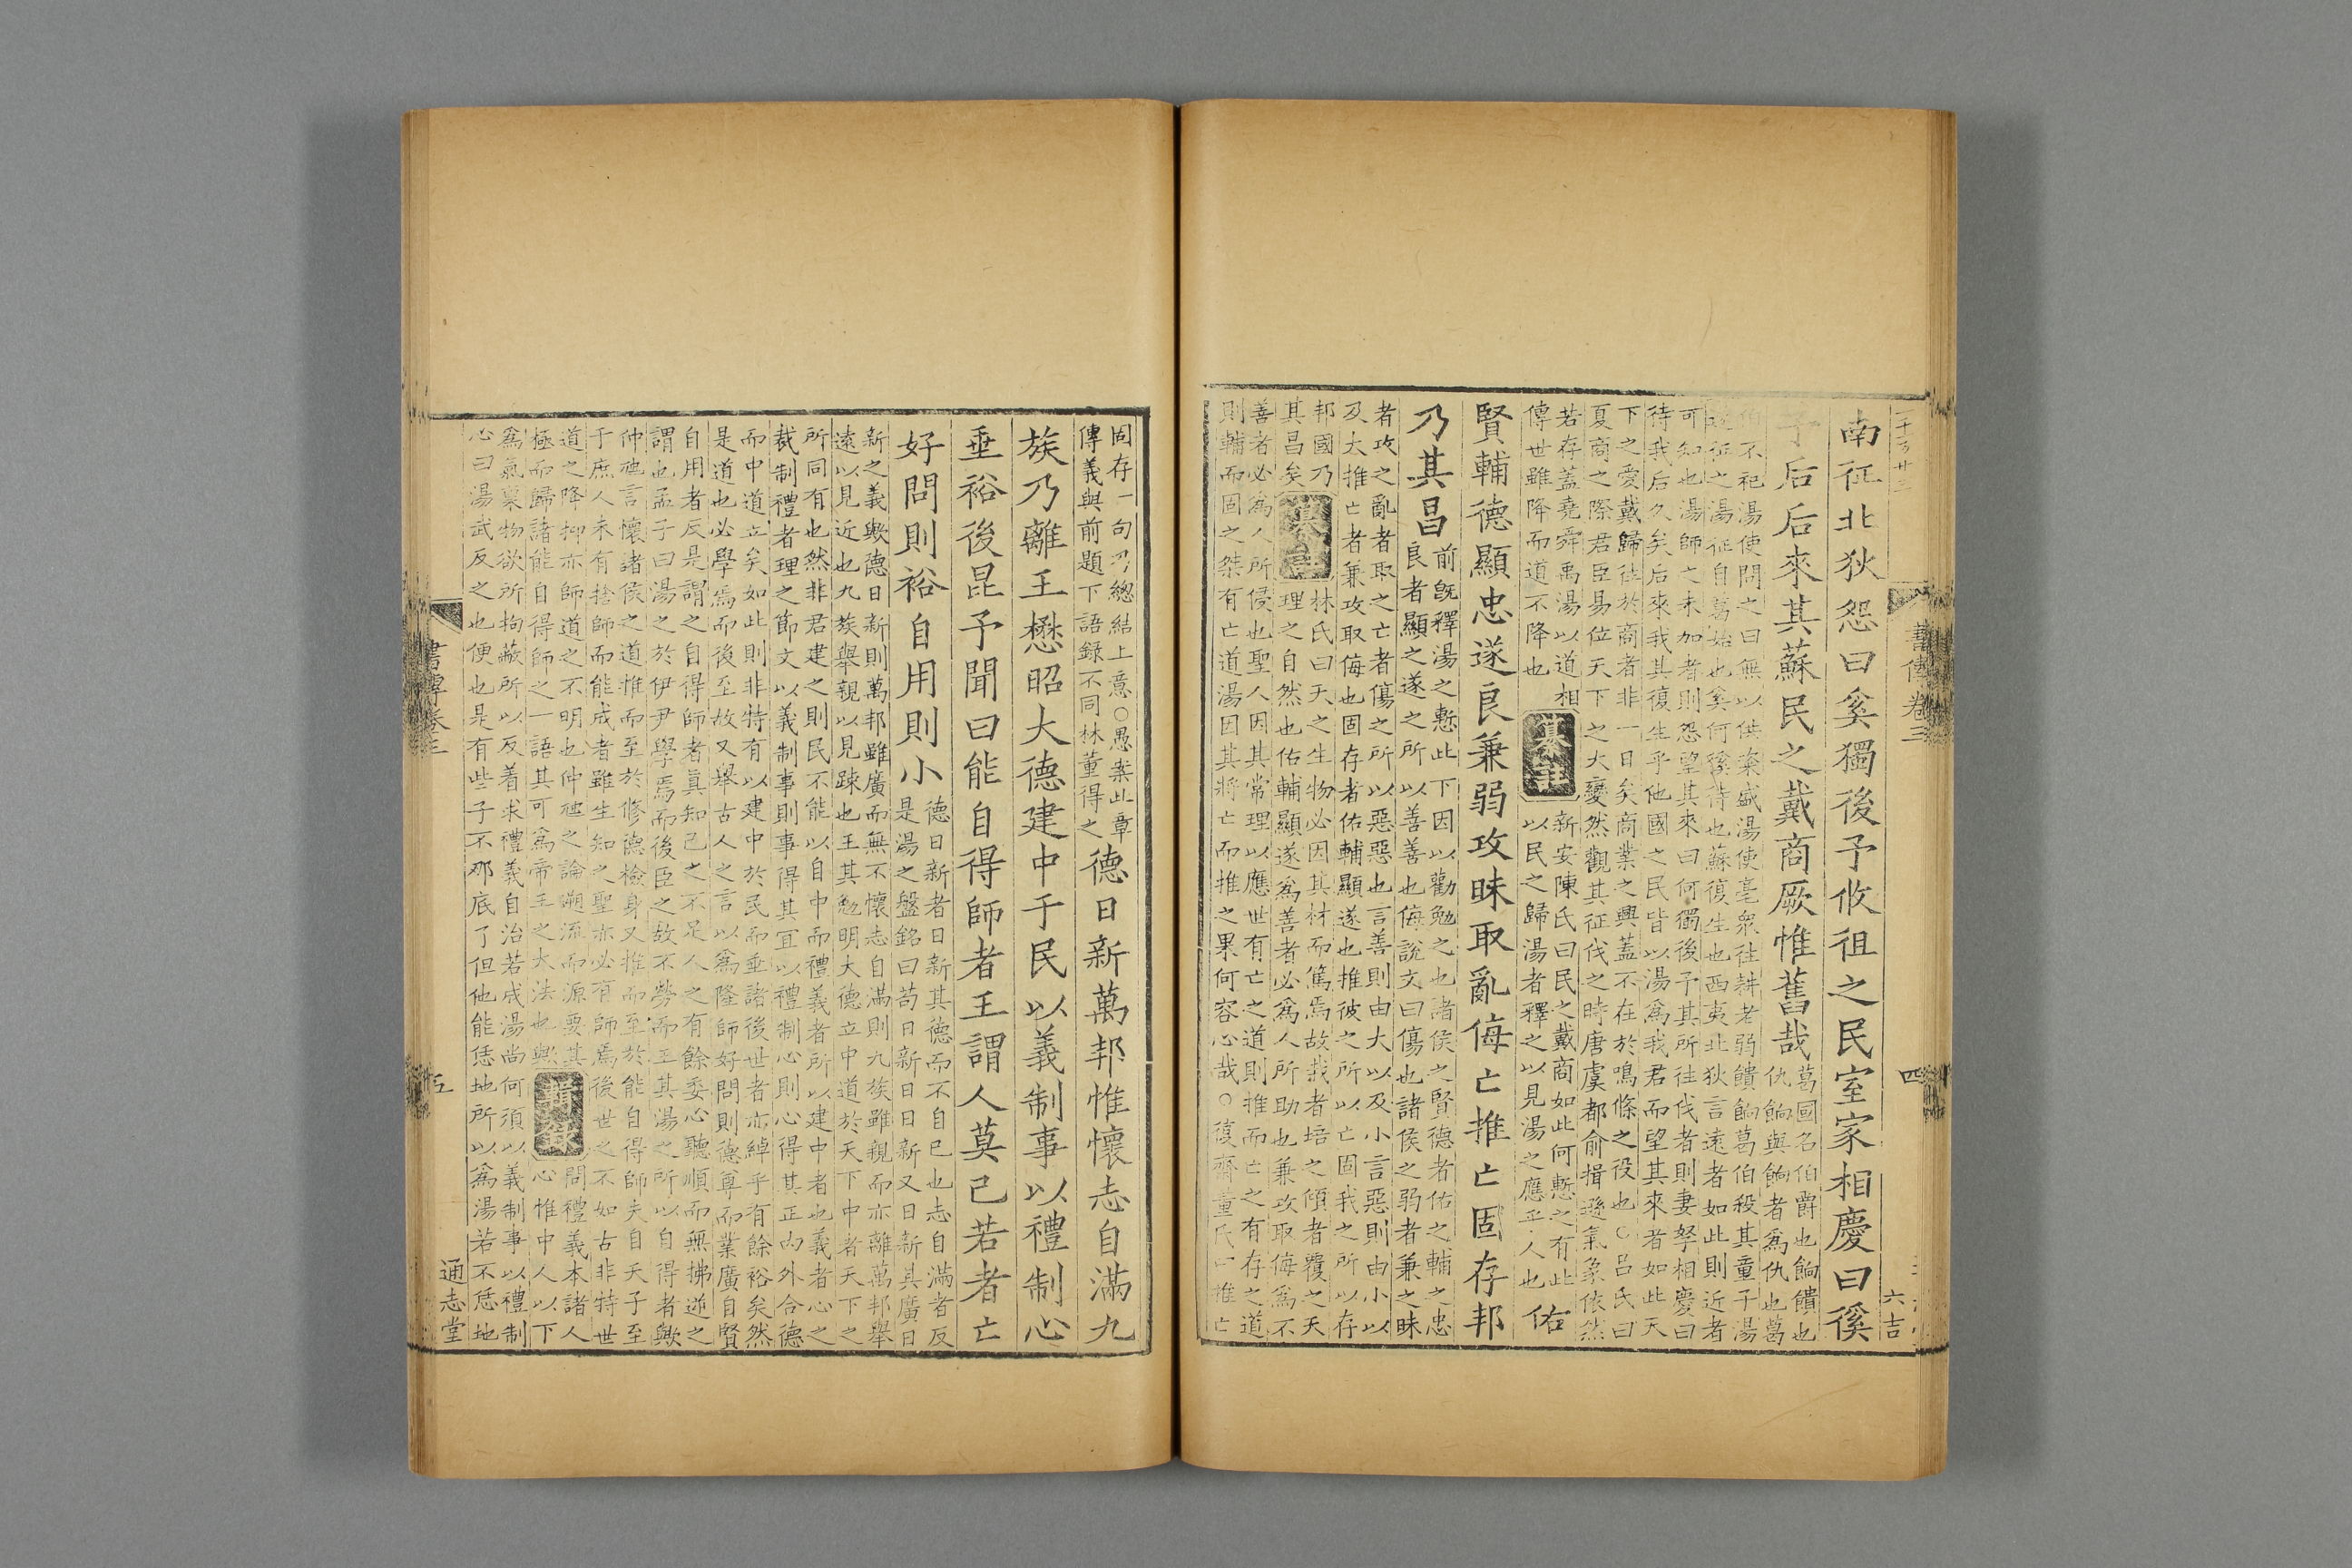 書傳卷三
四
六吉
南征北狄怨曰奚獨後予攸徂之民室家相慶曰徯
予后后來其蘇民之戴商厥惟舊哉
葛國名伯爵也餉饋也
仇餉與餉者爲仇也葛
伯不祀湯使問之曰無以供粢盛湯使亳衆往耕老弱饋餉葛伯殺其童子湯
遂征之湯征自葛始也奚何徯待也蘇復生也西夷北狄言遠者如此則近者
可知也湯師之未加者則怨望其來曰何獨後予其所往伐者則妻孥相慶曰
待我后久矣后來我其復生乎他國之民皆以湯爲我君而望其來者如此天
下之愛戴歸往於商者非一日矣商業之興蓋不在於鳴條之役也○呂氏曰
夏商之際君臣易位天下之大變然觀其征伐之時唐虞都俞揖遜氣象依然
若存蓋堯舜禹湯以道相
傳世雖降而道不降也
纂註
新安陳氏曰民之戴商如此何慙之有此
以民之歸湯者釋之以見湯之應乎人也
佑
賢輔德顯忠遂良兼弱攻昧取亂侮亡推亡固存邦
乃其昌
前旣釋湯之慙此下因以勸勉之也諸侯之賢德者佑之輔之忠
良者顯之遂之所以善善也侮說文曰傷也諸侯之弱者兼之昧
者攻之亂者取之亡者傷之所以惡惡也言善則由大以及小言惡則由小以
及大推亡者兼攻取侮也固存者佑輔顯遂也推彼之所以亡固我之所以存
邦國乃
其昌矣
纂註
林氏曰天之生物必因其材而篤焉故栽者培之傾者覆之天
理之自然也佑輔顯遂爲善者必爲人所助也兼攻取侮爲不
善者必爲人所侵也聖人因其常理以應世有亡之道則推而亡之有存之道
則輔而固之桀有亡道湯因其將亡而推之果何容心哉○復齋董氏曰推亡
固存一句乃總結上意○愚案此章
傳義與前題下語錄不同林董得之
德日新萬邦惟懷志自滿九
族乃離王懋昭大德建中于民以義制事以禮制心
垂裕後昆予聞曰能自得師者王謂人莫己若者亡
好問則裕自用則小
德日新者日新其德而不自已也志自滿者反
是湯之盤銘曰苟日新日日新又日新其廣日
新之義歟德日新則萬邦雖廣而無不懷志自滿則九族雖親而亦離萬邦舉
遠以見近也九族舉親以見疎也王其勉明大德立中道於天下中者天下之
所同有也然非君建之則民不能以自中而禮義者所以建中者也義者心之
裁制禮者理之節文以義制事則事得其宜以禮制心則心得其正內外合德
而中道立矣如此則非特有以建中於民而垂諸後世者亦綽乎有餘裕矣然
是道也必學焉而後至故又舉古人之言以爲隆師好問則德尊而業廣自賢
自用者反是謂之自得師者眞知己之不足人之有餘委心聽順而無拂逆之
謂也孟子曰湯之於伊尹學焉而後臣之故不勞而王其湯之所以自得者歟
仲虺言懷諸侯之道推而至於修德檢身又推而至於能自得師夫自天子至
于庶人未有捨師而能成者雖生知之聖亦必有師焉後世之不如古非特世
道之降抑亦師道之不明也仲虺之論遡流而源要其
極而歸諸能自得師之一語其可爲帝王之大法也歟
語錄
問禮義本諸人
心惟中人以下
爲氣禀物欲所拘蔽所以反着求禮義自治若成湯尚何須以義制事以禮制
心曰湯武反之也便也是有些子不那底了但他能恁地所以爲湯若不恁地
書傳卷三
五
通志堂